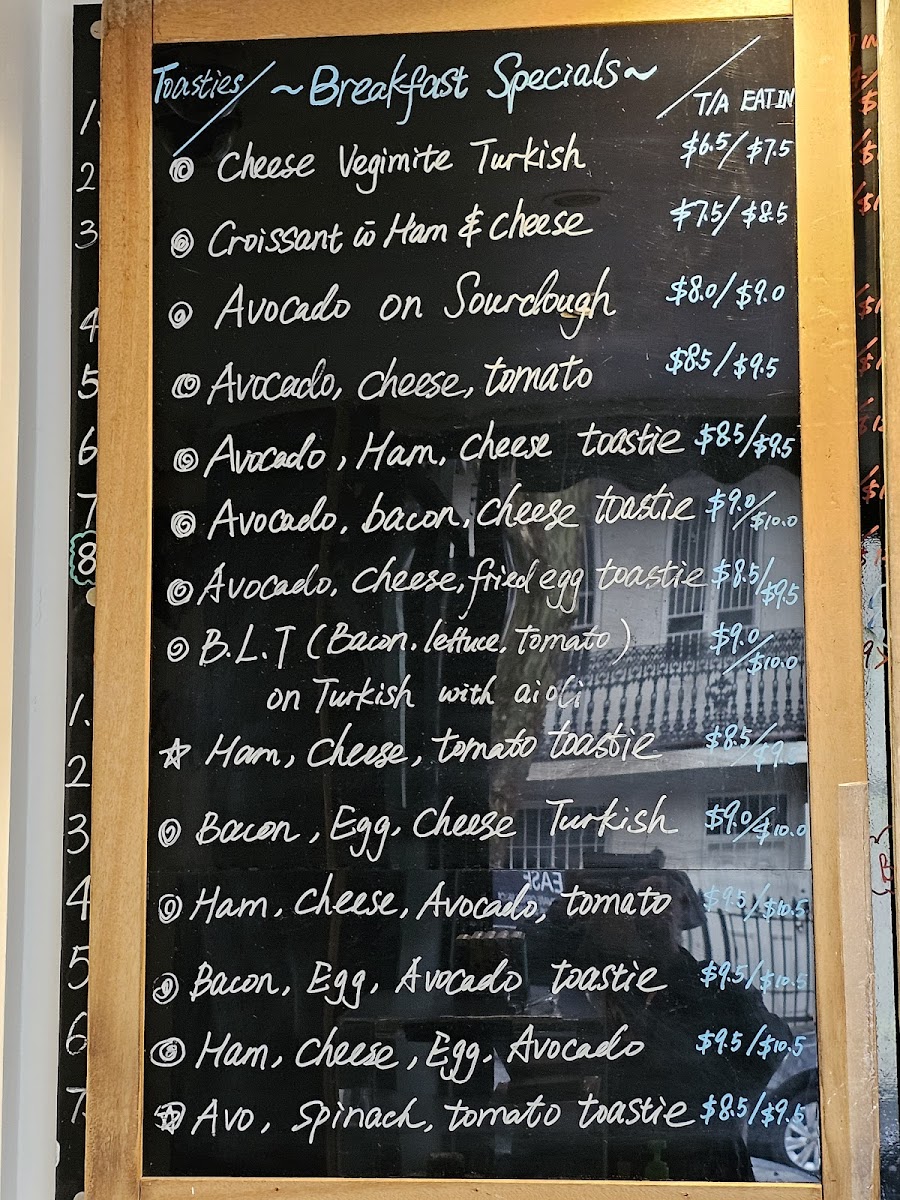 Toasties ~Breakfast Specials~
T/A EAT IN
Cheese Vegimite Turkish $6.5/$7.5
Croissant w̄ Ham & Cheese $7.5/$8.5
Avocado on Sourdough $8.0/$9.0
Avocado, cheese, tomato $8.5/$9.5
Avocado, Ham, cheese toastie $8.5/$9.5
Avocado, bacon, cheese toastie $9.0/$10.0
Avocado, cheese, fried egg toastie $8.5/$9.5
B.L.T (Bacon, lettuce, tomato) $9.0/$10.0
on Turkish with aioli
Ham, cheese, tomato toastie $8.5/$9
Bacon, Egg, cheese Turkish $9.0/$10.0
Ham, cheese, Avocado, tomato $9.5/$10.5
Bacon, Egg, Avocado toastie $9.5/$10.5
Ham, cheese, Egg, Avocado $9.5/$10.5
Avo, spinach, tomato toastie $8.5/$9.5
1.
2
3
4
5
6
7
8
1.
2
3
4
5
6
7